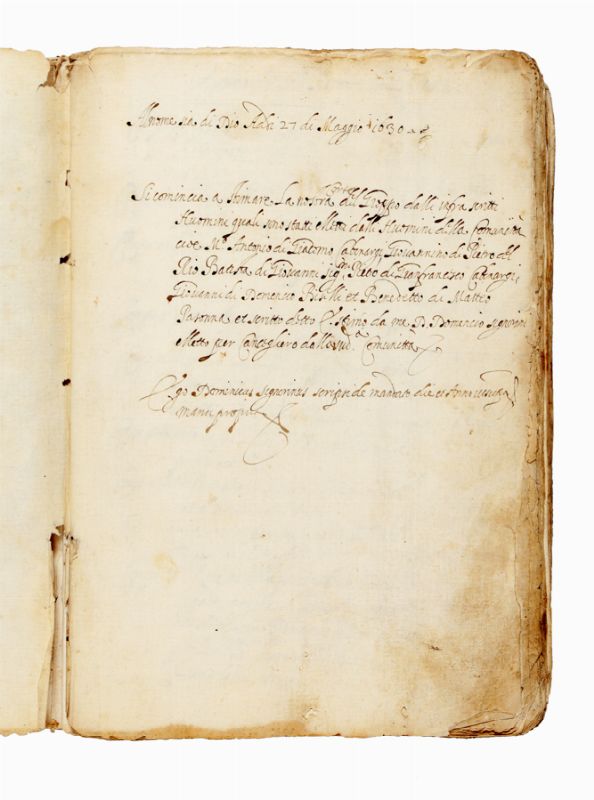 Al nome sia di Dio Adi 27 di Maggio 1630
Si comincia a stimare La nostra Corte del Groppo dalli infra scritti
Huomini quali sono statti elletti dalli Huomini della Comunità
cioè Mº Antonio di Giacomo Giovannino di Pietro del
Rio Batista di Giovanni Piero di Gianfrancesco
Giovanni di Domenico et Benedetto di Matteo
et scritto detto Estimo da me D. Domenico Signorini
elletto per Consegliero della sudª Comunittà
Ego Dominicus Signorinus scripsi de mandato die et Anno
manu propria